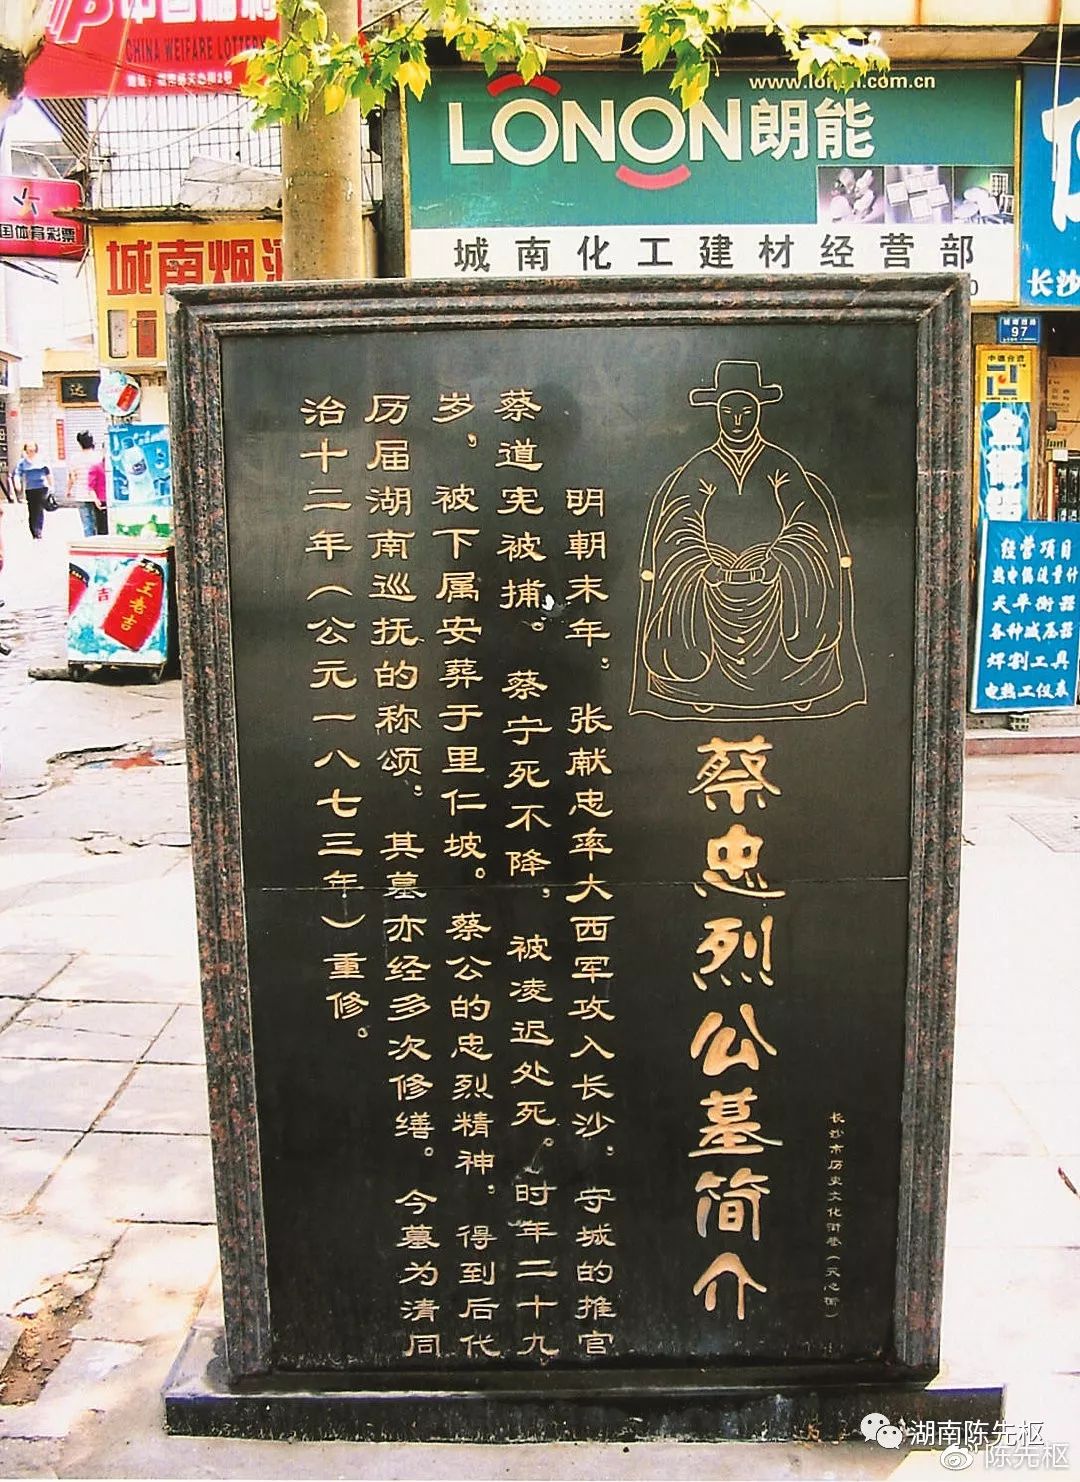 中国福利
CHINA WELFARE LOTTERY
www.lonon.com.cn
LONON朗能
城南化工建材经营部
国体育彩票
城南烟酒
长沙
97
王老吉
吉
经营项目
热电偶流量计
天平衡器
各种减压器
焊割工具
电热工仪表
长沙市历史文化街巷（天心阁）
蔡忠烈公墓简介
明朝末年，张献忠率大西军攻入长沙，守城的推官
蔡道宪被捕。蔡宁死不降，被凌迟处死。时年二十九
岁，被下属安葬于里仁坡。蔡公的忠烈精神，得到后代
历届湖南巡抚的称颂，其墓亦经多次修缮。今墓为清同
治十二年（公元一八七三年）重修。
湖南陈先枢
陈先枢